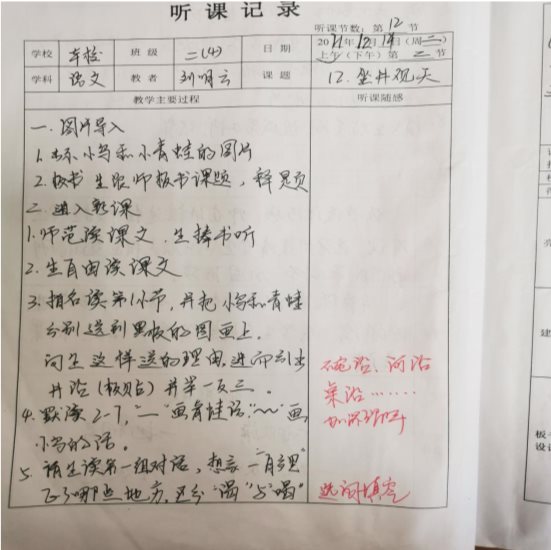 听课记录
听课节数：第12节
学校 本校 班级 二(4) 日期 2021年12月14日（周二）
上午（下午）第二节
学科 语文 教者 刘明云 课题 12.坐井观天
教学主要过程 听课随感
一.图片导入
1.出示小鸟和小青蛙的图片
2.板书 生跟师板书课题，释题
二.进入新课
1.师范读课文.生捧书听
2.生自由读课文
3.指名读第1小节，并把小鸟和青蛙
分别送到黑板的图画上.
问生这样送的理由,进而引出
井沿（板贴）并举一反三。
碗沿、河沿
桌沿……
4.默读2-7,"—"画青蛙话."~~"画
小鸟的话。
5.请生读第一组对话，想象一百多里
飞了哪些地方,区分"渴"与"喝"
选词填空
建
板
设